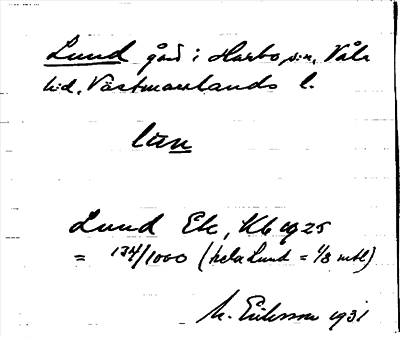 Lund gård i Harbo sn, Våla
hd, Västmanlands l.
lun
Lund Ek, Kb 1925
= 134/1000 (hela Lund = 1/8 mtl)
M. Eriksson 1931